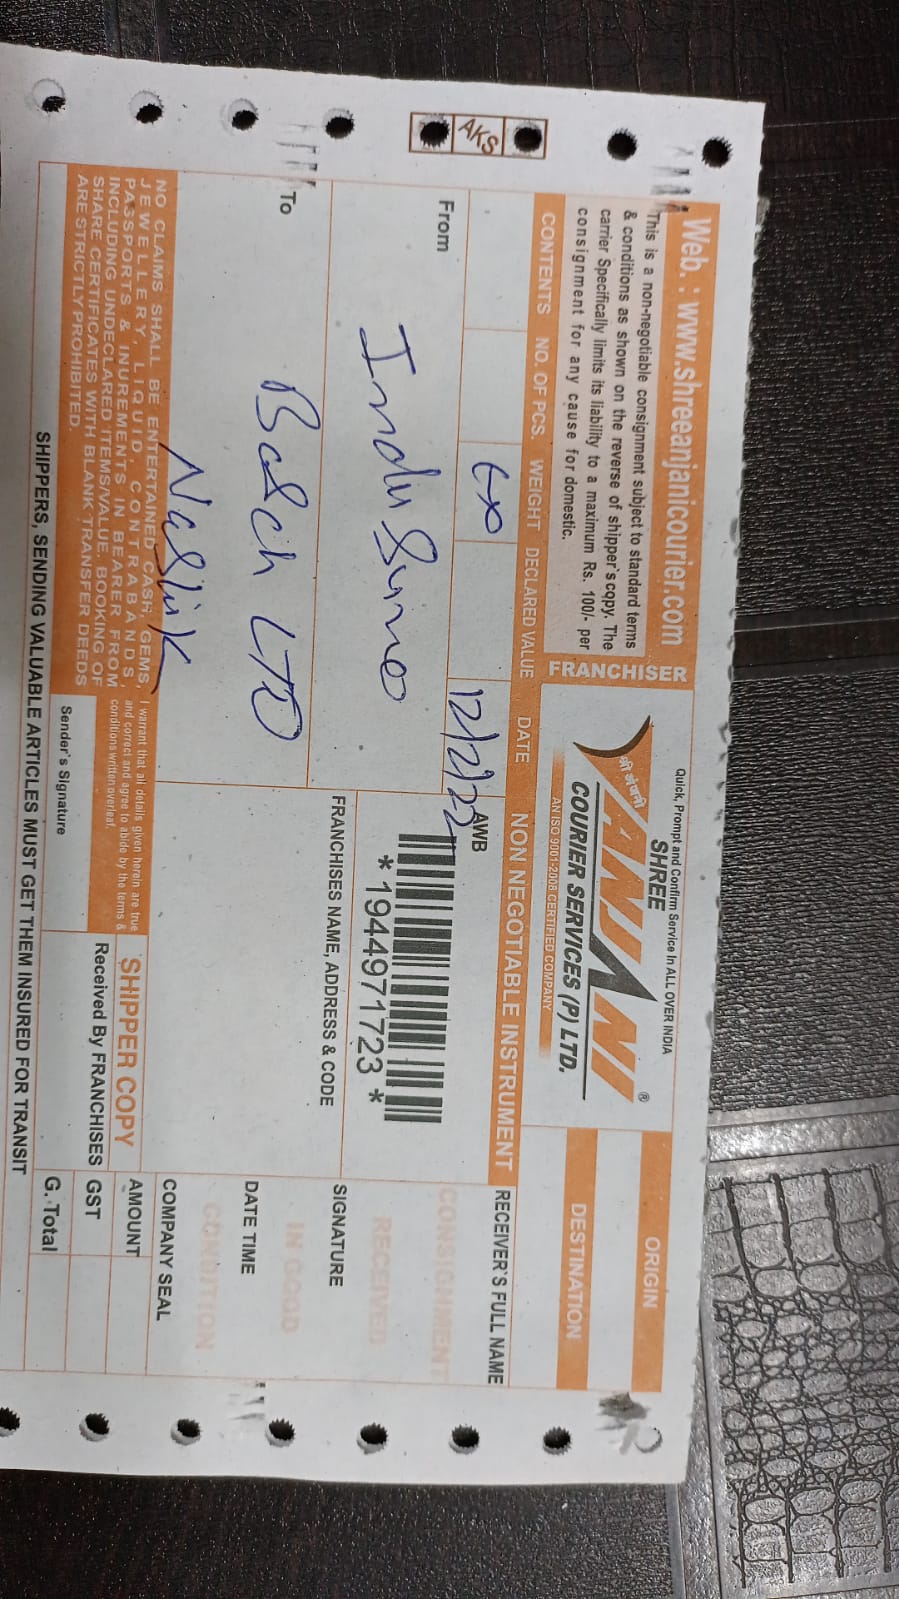 AKS
Web. : www.shreeanjanicourier.com
This is a non-negotiable consignment subject to standard terms
& conditions as shown on the reverse of shipper's copy. The
carrier Specifically limits its liability to a maximum Rs. 100/- per
consignment for any cause for domestic.
FRANCHISER
Quick, Prompt and Confirm Service In ALL OVER INDIA
SHREE
श्री अंजनी
ANJANI ®
COURIER SERVICES (P) LTD.
AN ISO 9001-2008 CERTIFIED COMPANY
ORIGIN
DESTINATION
CONTENTS NO. OF PCS. WEIGHT DECLARED VALUE DATE NON NEGOTIABLE INSTRUMENT
12/12/22
AWB
*1944971723*
From
Indu
To
Bosch LTD
Nashik
FRANCHISES NAME, ADDRESS & CODE
RECEIVER'S FULL NAME
CONSIGNMENT
RECEIVED
SIGNATURE
IN GOOD
DATE TIME
CONDITION
COMPANY SEAL
NO CLAIMS SHALL BE ENTERTAINED CASH, GEMS,
JEWELLERY, LIQUID, CONTRABANDS,
PASSPORTS & INUREMENTS IN BEARER FROM
INCLUDING UNDECLARED ITEMS/VALUE. BOOKING OF
SHARE CERTIFICATES WITH BLANK TRANSFER DEEDS
ARE STRICTLY PROHIBITED.
I warrant that all details given herein are true
and correct and agree to abide by the terms &
conditions written overleaf.
Sender's Signature
SHIPPER COPY
Received By FRANCHISES
AMOUNT
GST
G. Total
SHIPPERS, SENDING VALUABLE ARTICLES MUST GET THEM INSURED FOR TRANSIT